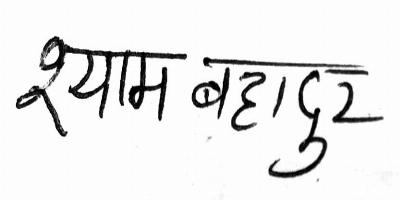 श्याम बहादुर